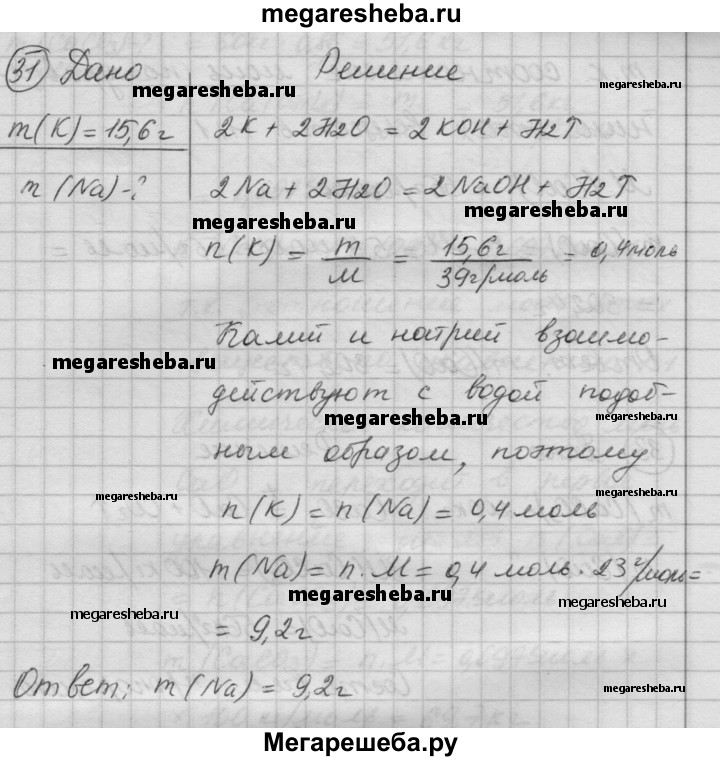 megaresheba.ru
31 Дано Решение
megaresheba.ru megaresheba.ru
m(K)=15,6г 2K + 2H2O = 2KOH + H2↑
m(Na)-? 2Na + 2H2O = 2NaOH + H2↑
megaresheba.ru megaresheba.ru
n(K) = m/M = 15,6г/39г/моль = 0,4моль
Калий и натрий взаимо-
megaresheba.ru megaresheba.ru
действуют с водой подоб-
megaresheba.ru megaresheba.ru
ным образом, поэтому
megaresheba.ru megaresheba.ru
n(K) = n(Na) = 0,4 моль
m(Na) = n·M = 0,4 моль · 23 г/моль =
megaresheba.ru megaresheba.ru megaresheba.ru
= 9,2г
Ответ: m(Na) = 9,2г
megaresheba.ru
Мегарешеба.ру